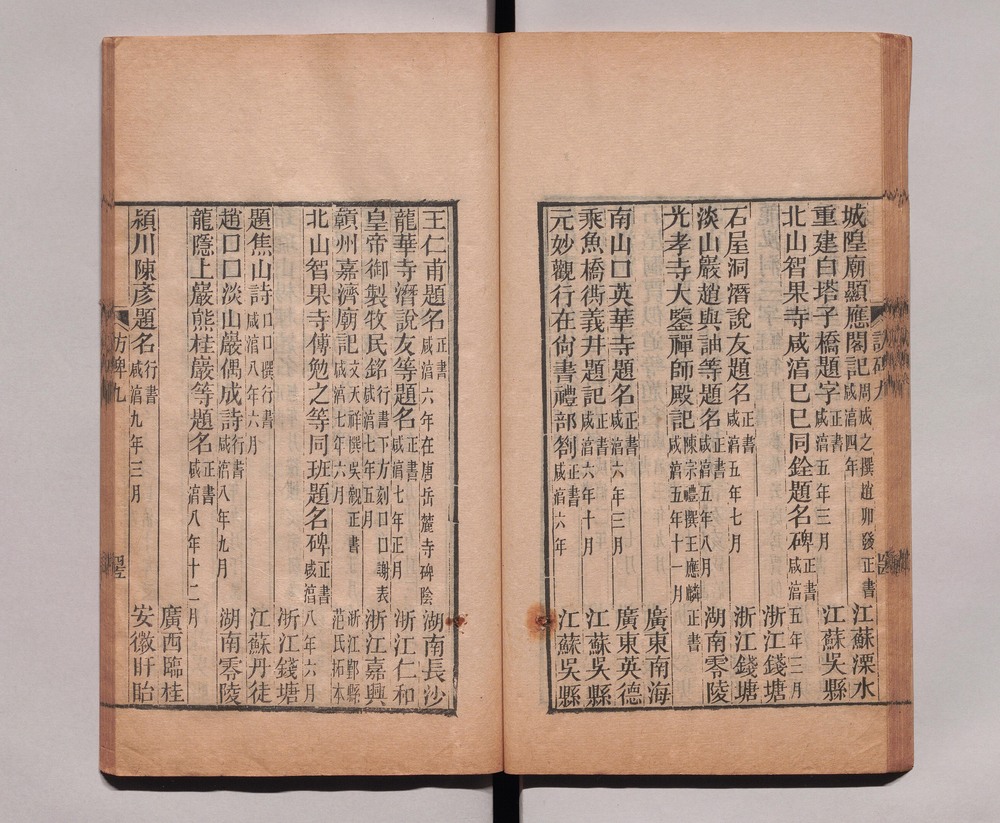 城隍廟顯應閣記 周成之撰趙卯發正書 咸淳四年 江蘇溧水
重建白塔子橋題字 正書 咸淳五年三月 江蘇吳縣
北山智果寺咸淳己巳同銓題名碑 正書 咸淳五年二月
浙江錢塘
石屋洞潛說友題名 正書 咸淳五年七月 浙江錢塘
淡山巖趙與䛆等題名 正書 咸淳五年八月 湖南零陵
光孝寺大鑒禪師殿記 陳宗禮撰王應麟正書 咸淳五年十一月 廣東南海
南山口英華寺題名 正書 咸淳六年三月 廣東英德
乘魚橋衖義井題記 正書 咸淳六年十月 江蘇吳縣
元妙觀行在尚書禮部劄 正書 咸淳六年 江蘇吳縣
王仁甫題名 正書 咸淳六年在唐岳麓寺碑陰 湖南長沙
龍華寺潛說友等題名 正書 咸淳七年正月 浙江仁和
皇帝御製牧民銘 行書下方刻口口謝表 咸淳七年五月 浙江嘉興
贛州嘉濟廟記 文天祥撰吳觀正書 咸淳七年六月 浙江鄞縣范氏拓本
北山智果寺傅勉之等同班題名碑 正書 咸淳八年六月
浙江錢塘
題焦山詩 口口撰行書 咸淳八年六月 江蘇丹徒
趙口口淡山巖偶成詩 行書 咸淳八年九月 湖南零陵
龍隱上巖熊桂巖等題名 正書 咸淳八年十二月
廣西臨桂
潁川陳彥題名 行書 咸淳九年三月 安徽盱眙